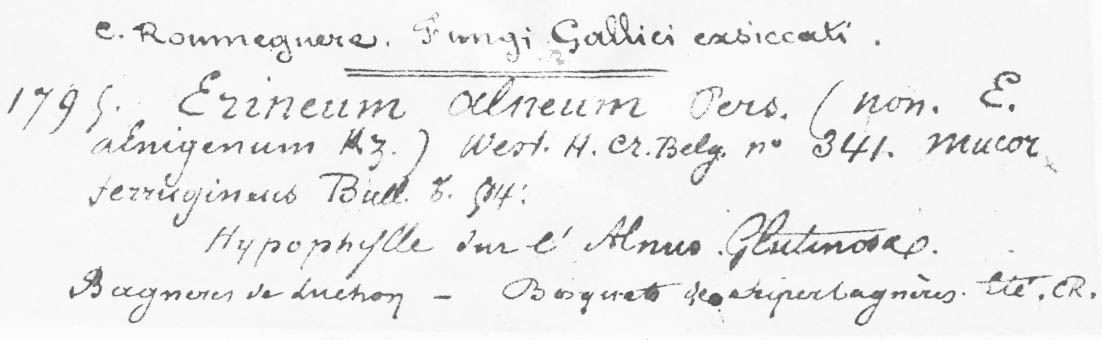 C. Roumeguere. Fungi Gallici exsiccati.
1795. Erineum alneum Pers. (non. E.
alnigenum Kz.) West. H. Cr. Belg. nº 341. Mucor
ferrugineus Bull. t.
Hypophylle sur l'Alnus Glutinosa.
Bagneres de Luchon – Bosquets de Superbagnères. Eté. CR.